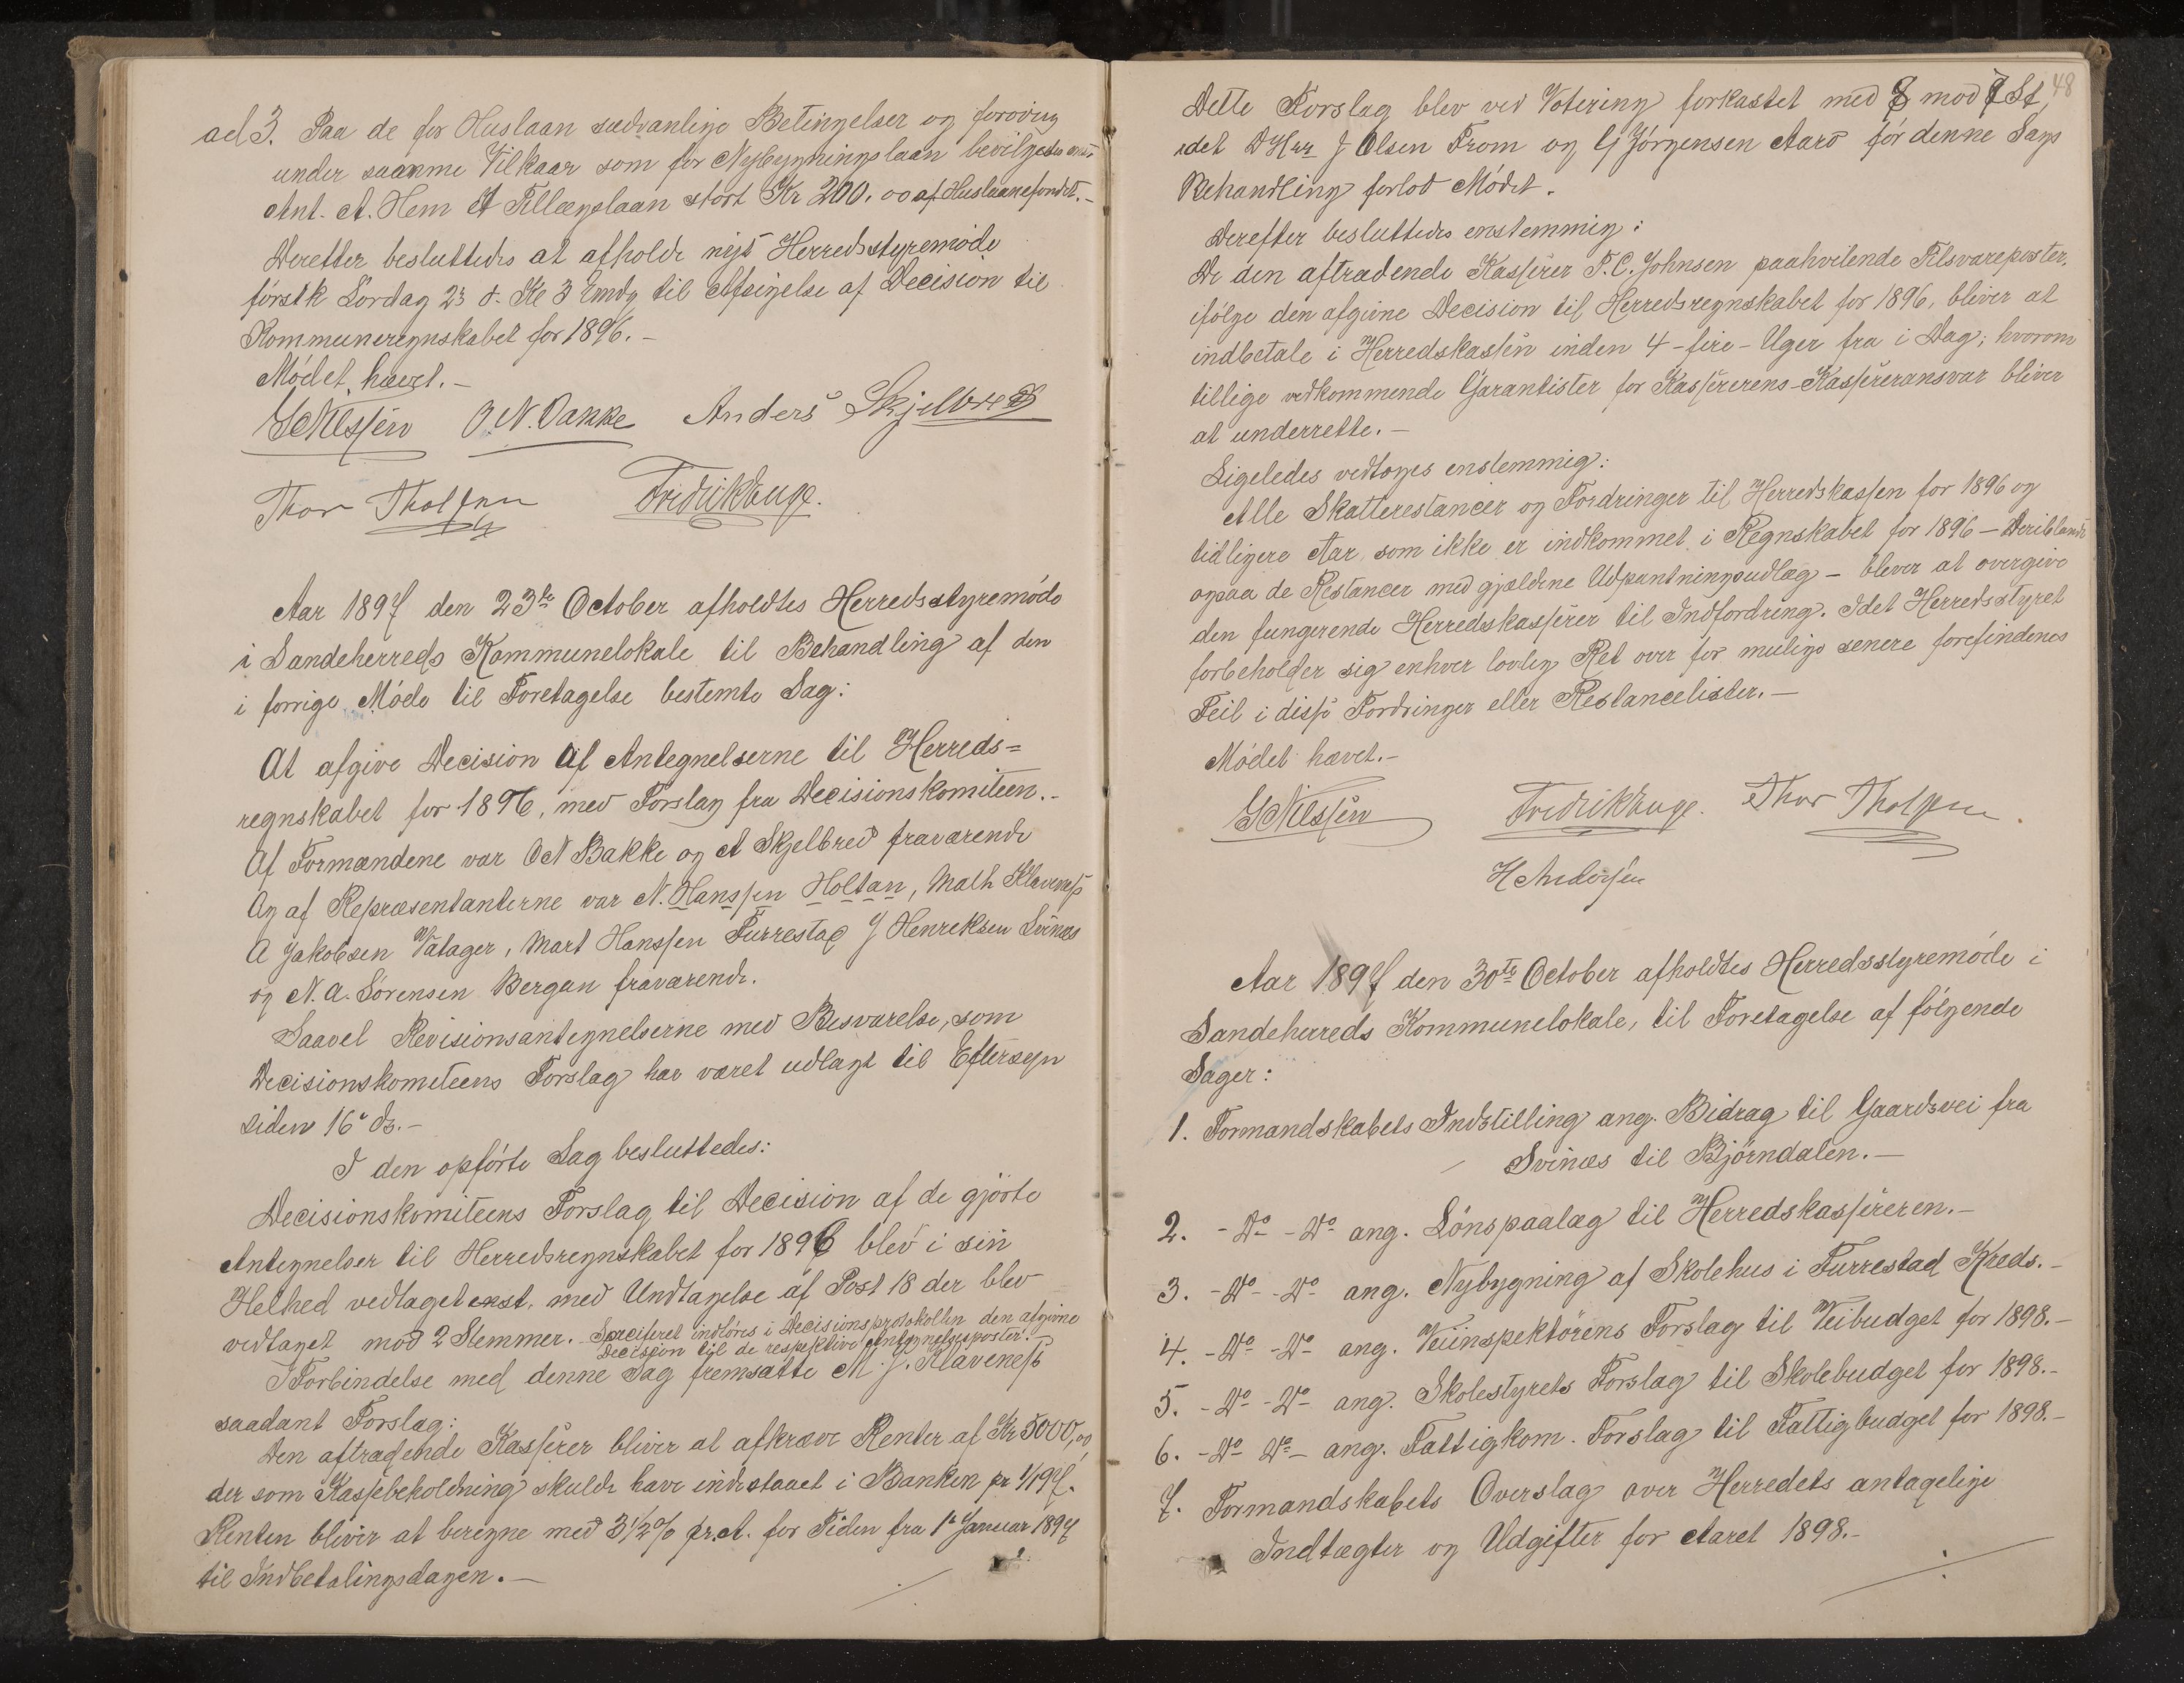 ad 3. Paa de for Huslaan sædvanlige Betingelser og forøvrig
under saamme Vilkaar som for Nybygningslaan bevilgedes
Ant. A. Hem Et Tillægslaan stort Kr 200.00 af Huslaanefondet. -
Derefter besluttedes at afholde nyt Herredsstyremøde
førstk Lørdag 23 d. Kl 3 Emdg til Afsigelse af Decision til
Kommuneregnskabet for 1896. -
Mødet hævet. -
O. N. Bakke Anders Skjelbred
Thor Tholfsen Fredrik Buge.
Aar 1897 den 23de October afholdtes Herredsstyremøde
i Sandeherreds Kommunelokale til Behandling af den
i forrige Møde til Foretagelse bestemte Sag:
At afgive Decision af Antegnelserne til Herreds=
regnskabet for 1896, med Forslag fra Decisionskomiteen. -
Af Formændene var O N Bakke og A Skjelbred fraværende
Og af Repræsentanterne var N. Hanssen Holtan, Math Klaveness
A Jakobsen Vatager, Mart Hanssen Furrestad J Henriksen Svinæs
og N. A. Sørensen Bergan fraværende.
Saavel Revisionsantegnelserne med Besvarelse, som
Decisionskomiteens Forslag har været udlagt til Eftersyn
siden 16de ds. -
I den opførte Sag besluttedes:
Decisionskomiteens Forslag til Decision af de gjorte
Antegnelser til Herredsregnskabet for 1896 blev i sin
Helhed vedtaget enst. med Undtagelse af Post 18 der blev
vedtaget mod 2 Stemmer. - Specificeret indføres i Decisionsprotokollen den afgivne
Decision til de respektive Antegnelsesposter.
I Forbindelse med denne Sag fremsatte M. J. Klaveness
saadant Forslag:
Den aftrædende Kasserer bliver at afkræve Renter af Kr 5000,00
der som Kassebeholdning skulde have indestaaet i Banken pr 1/1 97.
Renten bliver at beregne med 3 1/2 % pr. A. for Tiden fra 1ste Januar 1897
til Indbetalingsdagen. -
48
Dette Forslag blev ved Votering forkastet med 8 mod 7 St,
idet D Hrr J Olsen From og G Jørgensen Aarø før denne Sags
Behandling forlod Mødet.
Derefter besluttedes enstemmig:
De den aftrædende Kasserer T. C. Johnsen paahvilende Tilsvareposter,
ifølge den afgivne Decision til Herredsregnskabet for 1896, bliver at
indbetale i Herredskassen inden 4 - fire - Uger fra i Dag; hvorom
tillige vedkommende Garantister for Kassererens - Kassereransvar bliver
at underrette. -
Ligeledes vedtoges enstemmig:
Alle Skatterestancer og Fordringer til Herredskassen for 1896 og
tidligere Aar som ikke er indkommet i Regnskabet for 1896 - Deriblandt
ogsaa de Restancer med gjældene Udpantningsudlæg - blever at overgive
den fungerende Herredskasserer til Indfordring. Idet Herredsstyret
forbeholder sig enhver lovlig Ret over for mulige senere forefindenes
Feil i disse Fordringer eller Restancelister. -
Mødet hævet. -
Fredrik Buge. Thor Tholfsen
H Andersen
Aar 1897 den 30te October afholdtes Herredsstyremøde i
Sandeherreds Kommunelokale, til Foretagelse af følgende
Sager:
1. Formandskabets Indstilling ang. Bidrag til Gaardsvei fra
Svinæs til Bjørndalen. -
2. - Do - Do ang. Lønspaalæg til Herredskassereren. -
3. - Do - Do ang. Nybygning af Skolehus i Furrestad Kreds. -
4. - Do - Do ang. Veiinspektørens Forslag til Veibudget for 1898. -
5. - Do - Do ang. Skolestyrets Forslag til Skolebudget for 1898. -
6. - Do Do - ang. Fattigkom. Forslag til Fattigbudget for 1898. -
7. Formandskabets Overslag over Herredets antagelige
Indtægter og Udgifter for Aaret 1898. -